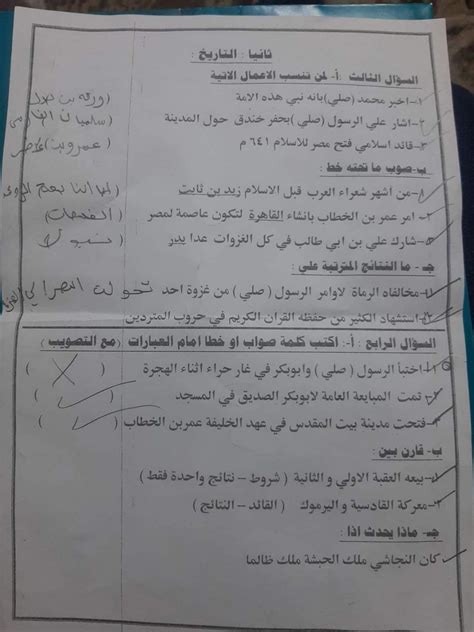 ثانيا : التاريخ :
السؤال الثالث : أ- لمن تنسب الاعمال الاتية
١- اخبر محمد (صلي) بانه نبي هذه الامة (ورقة بن نوفل
٢- اشار علي الرسول (صلي) بحفر خندق حول المدينة سلمان الفارسي
٣- قائد اسلامي فتح مصر للاسلام ٦٤١ م (عمرو بن العاص
ب- صوب ما تحته خط :
١- من أشهر شعراء العرب قبل الاسلام زيد بن ثابت
٢- امر عمر بن الخطاب بانشاء القاهرة لتكون عاصمة لمصر (الفسطاط
٣- شارك علي بن ابي طالب في كل الغزوات عدا بدر
جـ - ما النتائج المترتبة علي :
١- مخالفاه الرماة لاوامر الرسول (صلي) من غزوة احد تحولت النصر الي
٢- استشهاد الكثير من حفظه القران الكريم في حروب المتردين
السؤال الرابع : أ-: اكتب كلمة صواب او خطا امام العبارات (مع التصويب)
١- اختبأ الرسول (صلي) وابوبكر في غار حراء اثناء الهجرة ( )
٢- تمت المبايعة العامة لابوبكر الصديق في المسجد ( )
٣- فتحت مدينة بيت المقدس في عهد الخليفة عمر بن الخطاب ( )
ب- قارن بين :
١- بيعه العقبة الاولي و الثانية ( شروط – نتائج واحدة فقط )
٢- معركة القادسية و اليرموك ( القائد – النتائج )
جـ - ماذا يحدث اذا :
كان النجاشي ملك الحبشة ملك ظالما